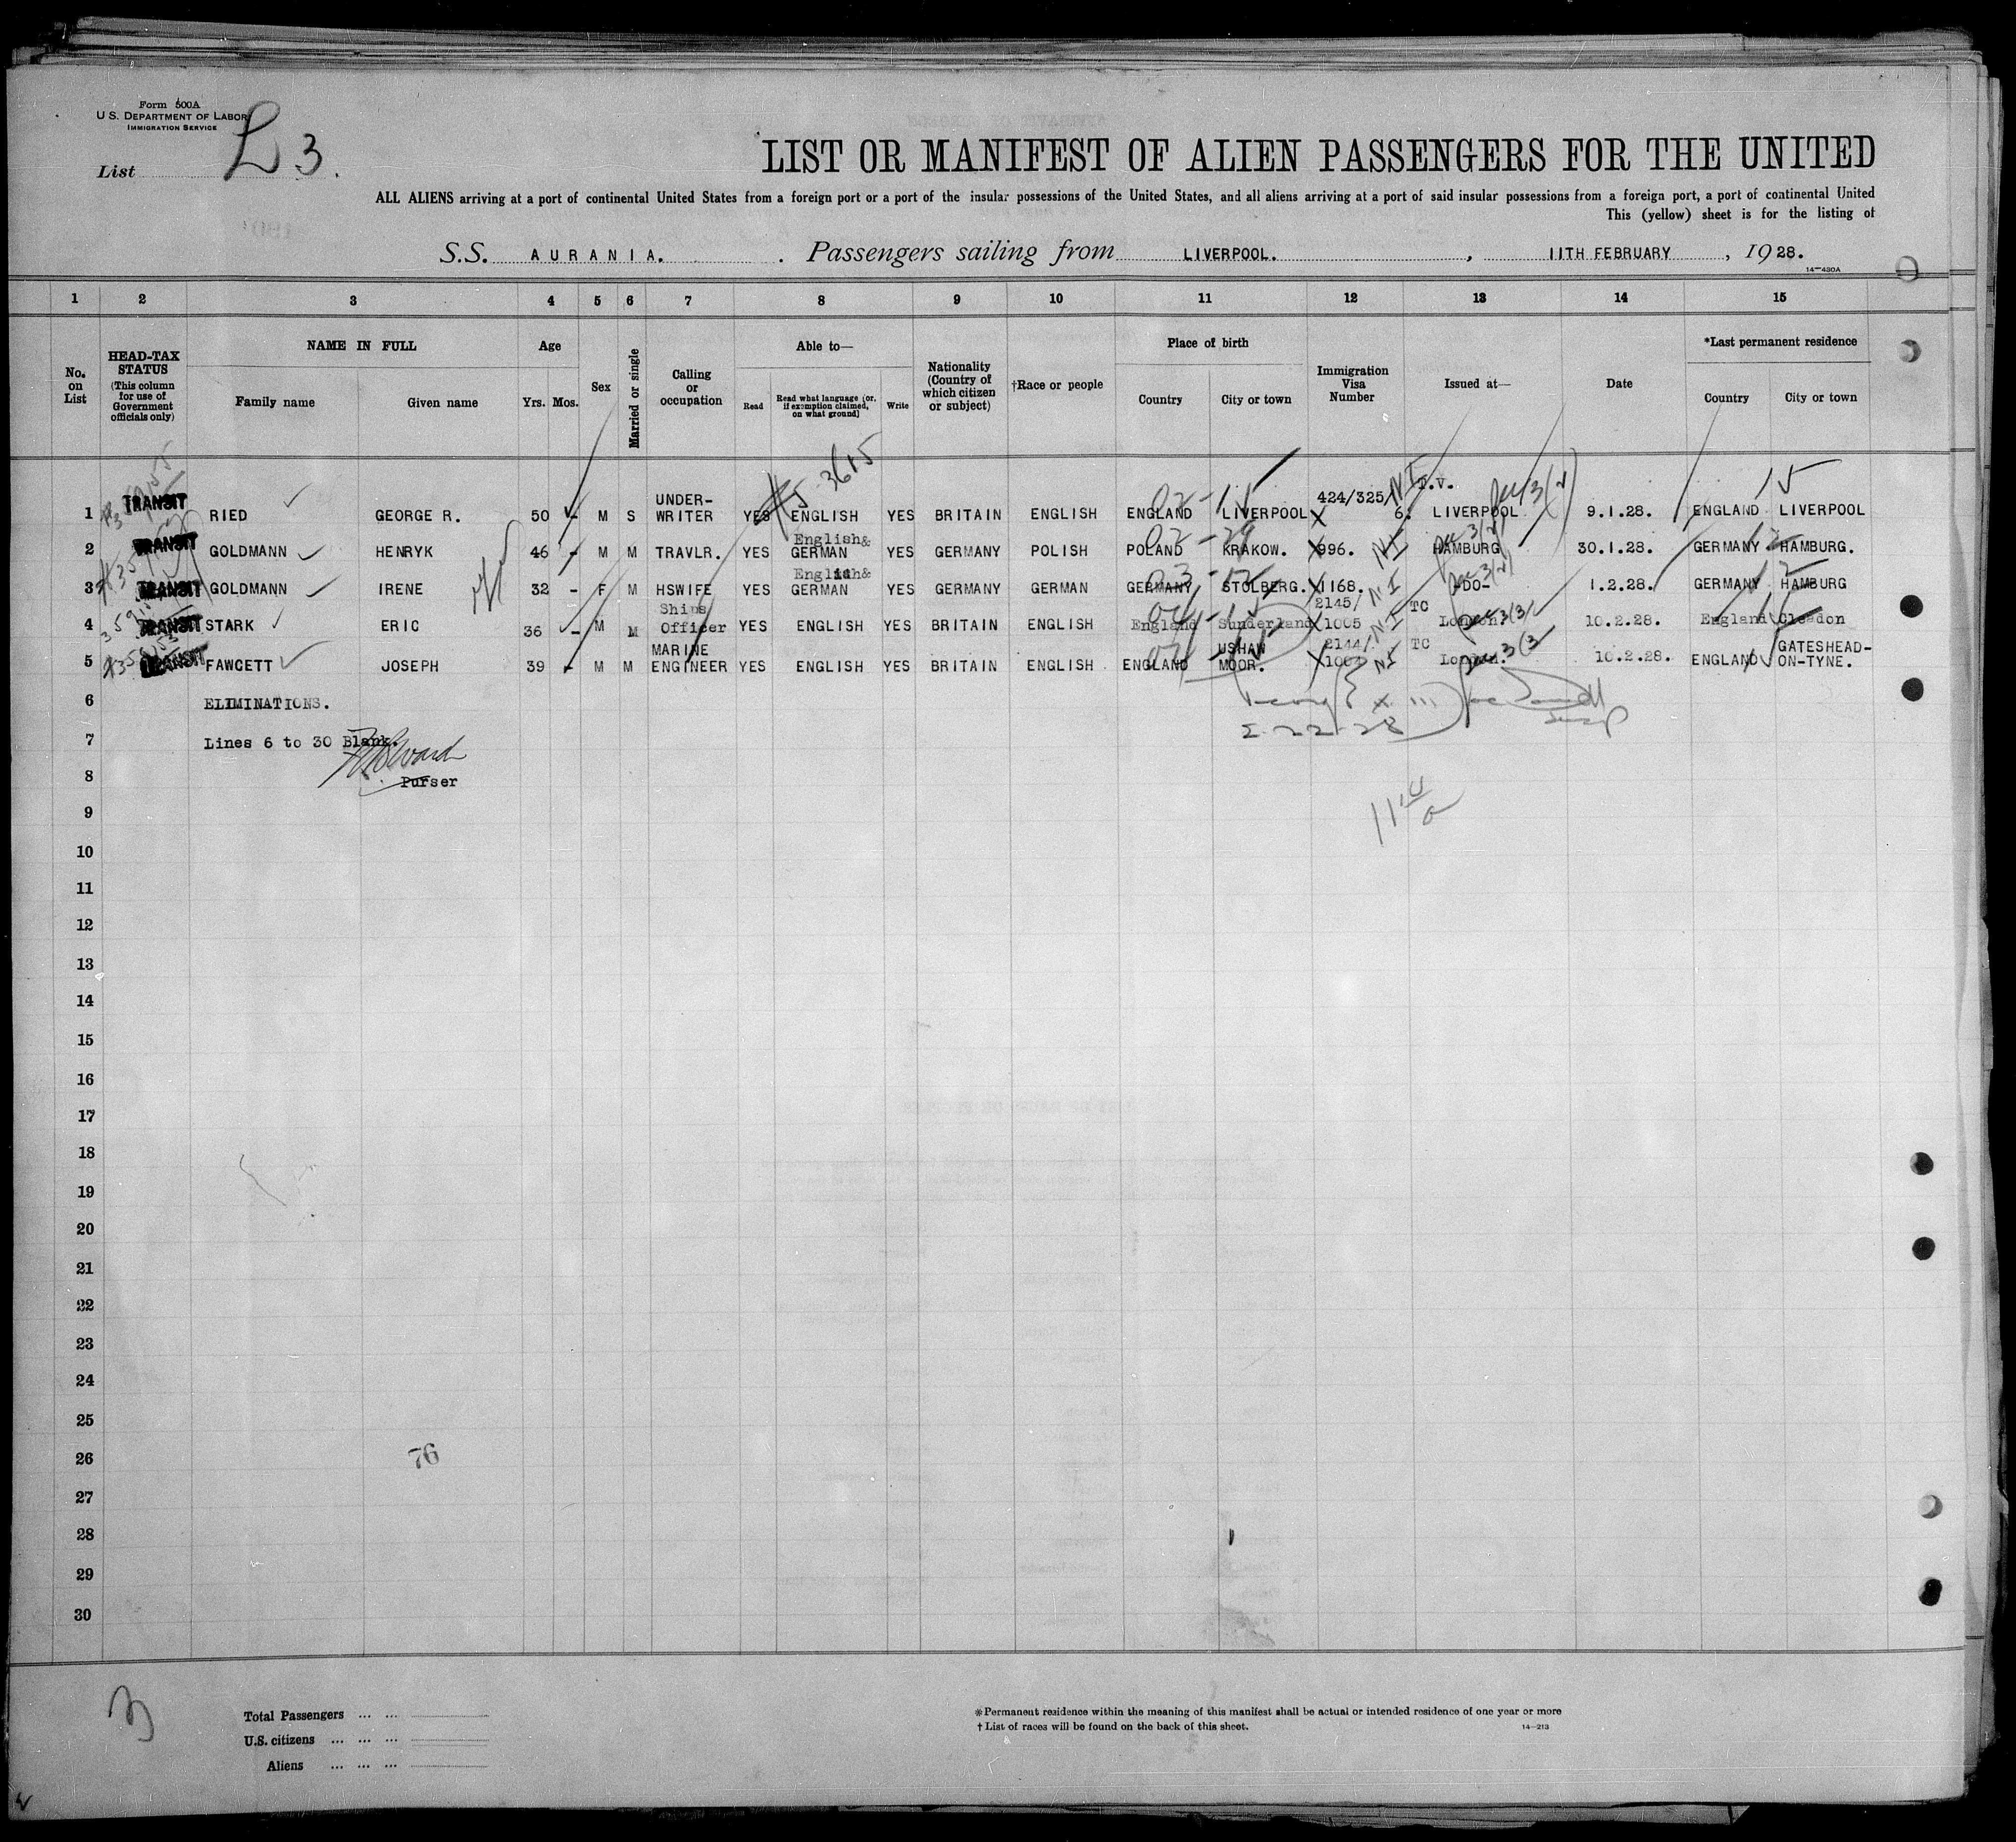 Form 500A
U.S. DEPARTMENT OF LABOR
IMMIGRATION SERVICE
List L 3.
LIST OR MANIFEST OF ALIEN PASSENGERS FOR THE UNITED
ALL ALIENS arriving at a port of continental United States from a foreign port or a port of the insular possessions of the United States, and all aliens arriving at a port of said insular possessions from a foreign port, a port of continental United
This (yellow) sheet is for the listing of
S.S. AURANIA. Passengers sailing from LIVERPOOL. , 11TH FEBRUARY , 1928.
14—430A
1 2 3 4 5 6 7 8 9 10 11 12 13 14 15
No. on List
HEAD-TAX STATUS (This column for use of Government officials only)
NAME IN FULL
Family name Given name
Age
Yrs. Mos.
Sex
Married or single
Calling or occupation
Able to—
Read Read what language (or, if exemption claimed, on what ground) Write
Nationality (Country of which citizen or subject)
†Race or people
Place of birth
Country City or town
Immigration Visa Number
Issued at—
Date
*Last permanent residence
Country City or town
#5 3615
1 TRANSIT RIED GEORGE R. 50 - M S UNDER-WRITER YES ENGLISH YES BRITAIN ENGLISH ENGLAND LIVERPOOL 424/325/ 6. LIVERPOOL 9.1.28. ENGLAND LIVERPOOL
2 TRANSIT GOLDMANN HENRYK 46 - M M TRAVLR. YES English& GERMAN YES GERMANY POLISH POLAND KRAKOW. 996. NI HAMBURG 30.1.28. GERMANY HAMBURG.
3 TRANSIT GOLDMANN IRENE 32 - F M HSWIFE YES English& GERMAN YES GERMANY GERMAN GERMANY STOLBERG. 1168. NI -DO- 1.2.28. GERMANY HAMBURG
4 TRANSIT STARK ERIC 36 - M M Ships Officer YES ENGLISH YES BRITAIN ENGLISH England Sunderland 2145/ 1005 NI TC London. 10.2.28. England Cleadon
5 TRANSIT FAWCETT JOSEPH 39 - M M MARINE ENGINEER YES ENGLISH YES BRITAIN ENGLISH ENGLAND USHAW MOOR. 2144/ NI TC London. 10.2.28. ENGLAND GATESHEAD-ON-TYNE.
6 ELIMINATIONS.
2-22-28
7 Lines 6 to 30 Blank.
8 Purser
9
10
11
12
13
14
15
16
17
18
19
20
21
22
23
24
25
26 76
27
28
29
30
3
Total Passengers ... ...
U.S. citizens ... ... ...
Aliens ... ... ...
*Permanent residence within the meaning of this manifest shall be actual or intended residence of one year or more
† List of races will be found on the back of this sheet.
14—213